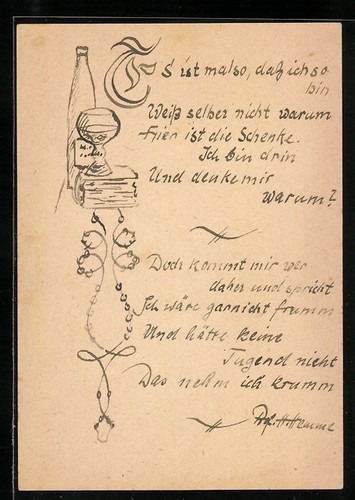 Es ist mal so, daß ich so
bin
Weiß selber nicht warum
Hier ist die Schenke.
Ich bin drin
Und denke mir
warum?
Doch kommt mir wer
daher und spricht
Ich wäre garnicht frumm
Und hätte keine
Tugend nicht
Das nehm ich krumm